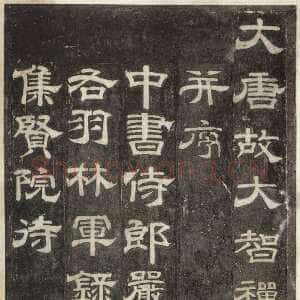 大唐故大智禪
并序
中書侍郎嚴
右羽林軍錄
集賢院待